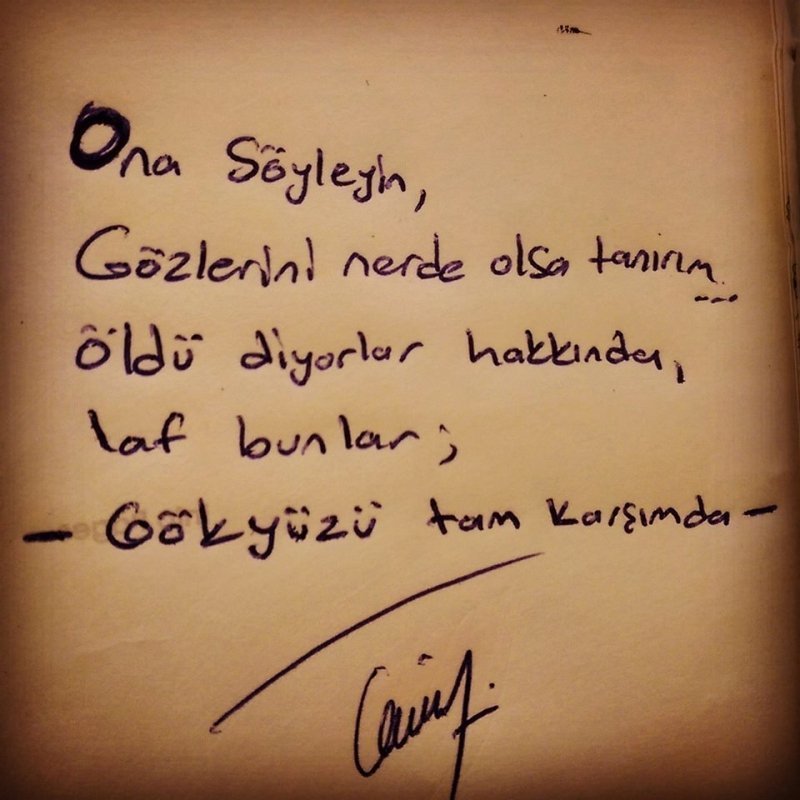 Ona Söyleyin,
Gözlerini nerde olsa tanırım...
öldü diyorlar hakkında,
laf bunlar;
- Gökyüzü tam karşımda -